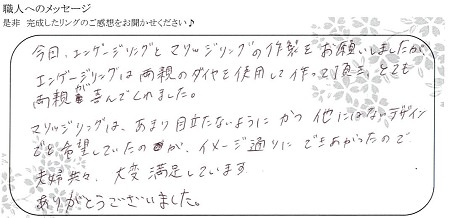 職人へのメッセージ
是非 完成したリングのご感想をお聞かせください♪
今回、エンゲージリングとマリッジリングの作製をお願いしましたが、
エンゲージリングは両親のダイヤを使用して作って頂き、とても
両親が喜んでくれました。
マリッジリングは、あまり目立たないように かつ 他にはないデザイン
でを希望していたのが、イメージ通りに できあがったので
夫婦共々、大変満足しています。
ありがとうございました。